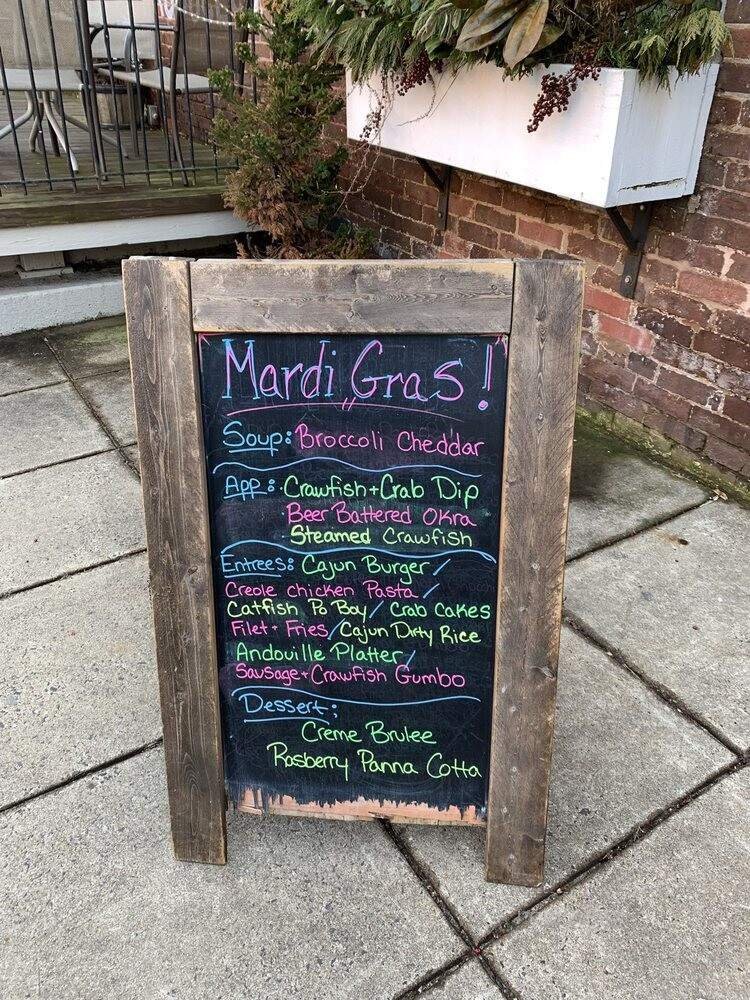 Mardi Gras!
Soup: Broccoli Cheddar
App: · Crawfish + Crab Dip
· Beer Battered Okra
· Steamed Crawfish
Entrees: Cajun Burger /
Creole Chicken Pasta /
Catfish Po Boy / Crab Cakes
Filet + Fries / Cajun Dirty Rice
Andouille Platter /
Sausage + Crawfish Gumbo
Dessert:
Creme Brulee
Rasberry Panna Cotta